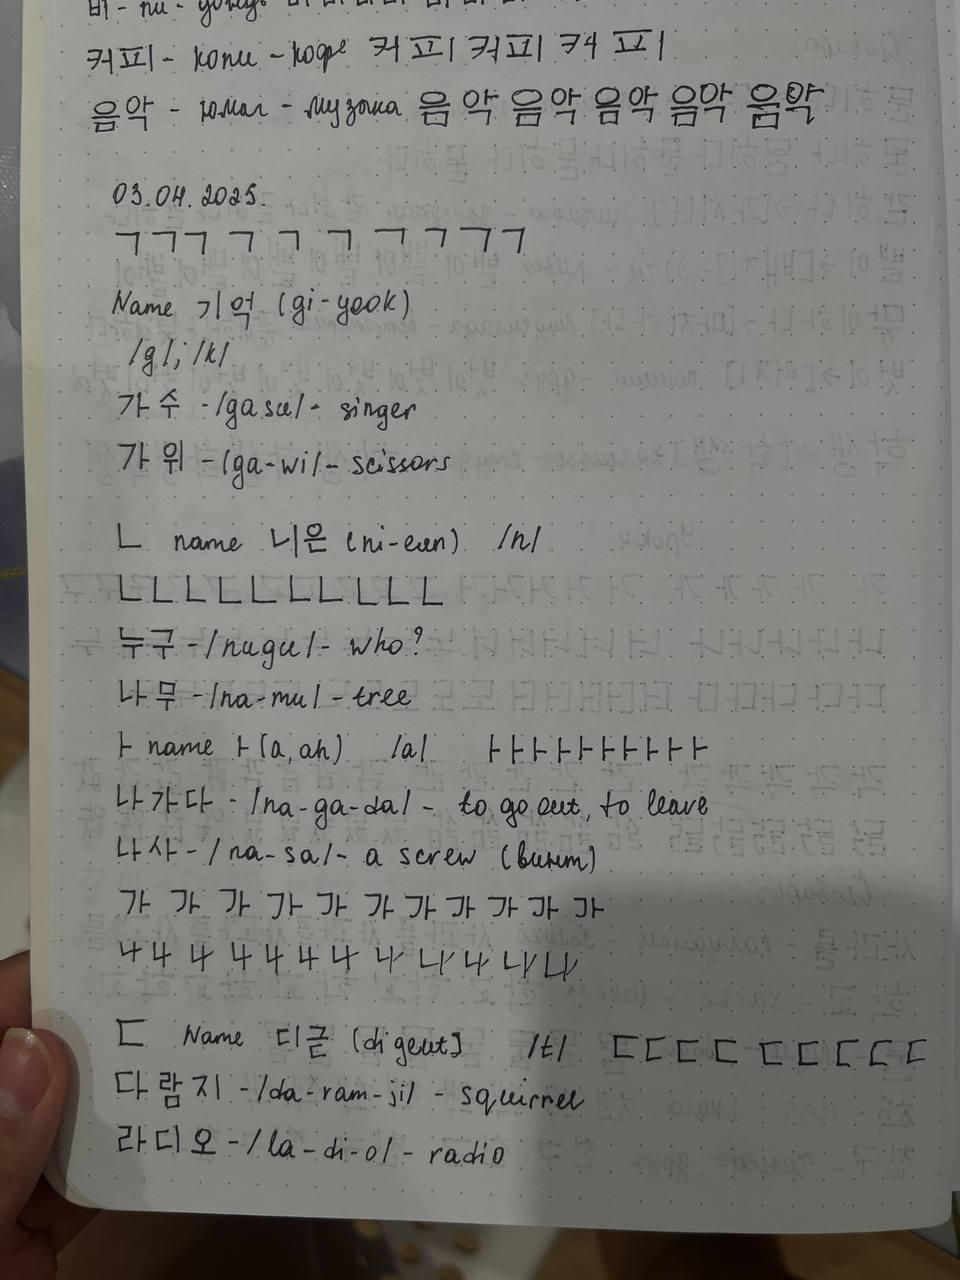 커피 - копи - кофе 커피 커피 커피
음악 - юмак - музыка 음악 음악 음악 음악 음악
03.04.2025.
ㄱㄱㄱ ㄱ ㄱ ㄱ ㄱ ㄱ ㄱ ㄱ
Name 기억 (gi-yeok)
/g/; /k/
가수 - /gasu/ - singer
가위 - /ga-wi/ - scissors
ㄴ name 니은 (ni-eun) /n/
ㄴㄴㄴㄴㄴㄴㄴㄴㄴㄴ
누구 - /nugu/ - who?
나무 - /na-mu/ - tree
ㅏ name ㅏ (a, ah) /a/ ㅏㅏㅏㅏㅏㅏㅏㅏㅏㅏ
나가다 - /na-ga-da/ - to go out, to leave
나사 - /na-sa/ - a screw (винт)
가 가 가 가 가 가 가 가 가 가 가
나 나 나 나 나 나 나 나 나 나 나 나
ㄷ Name 디귿 (digeut] /t/ ㄷㄷㄷㄷ ㄷㄷㄷㄷㄷ
다람지 - /da-ram-ji/ - squirrel
라디오 - /la-di-o/ - radio